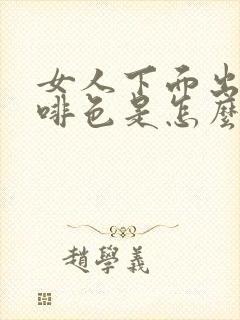 女人下面出
啡色是怎麼
趙學義